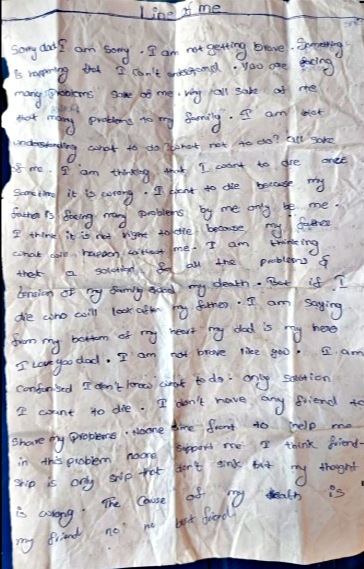 Line me
Sorry dad I am Sorry. I am not getting brave. Something
is happning that I can't understand. You are facing
many problems sake of me. why all sake of me
that many problems to my family. I am not
understanding what to do? what not to do? all sake
of me. I am thinking that I want to die once
Sometime it is wrong. I want to die because my
father is facing many problems by me only be me.
I think it is not right to die because my father
what will happen without me. I am thinking
that a solution for all the problems &
tension of my family my death. But if I
die who will look after my father. I am saying
from my bottom of my heart my dad is my hero
I Love you dad. I am not brave like you. I am
Confunised I don't know what to do. only solution
I want to die. I don't have any friend to
Share my problems. Noone front to help me
in this problem noone support me I think friend-
ship is only snip that don't sink but my thought
is wrong. The cause of my death is
my friend no no best friend